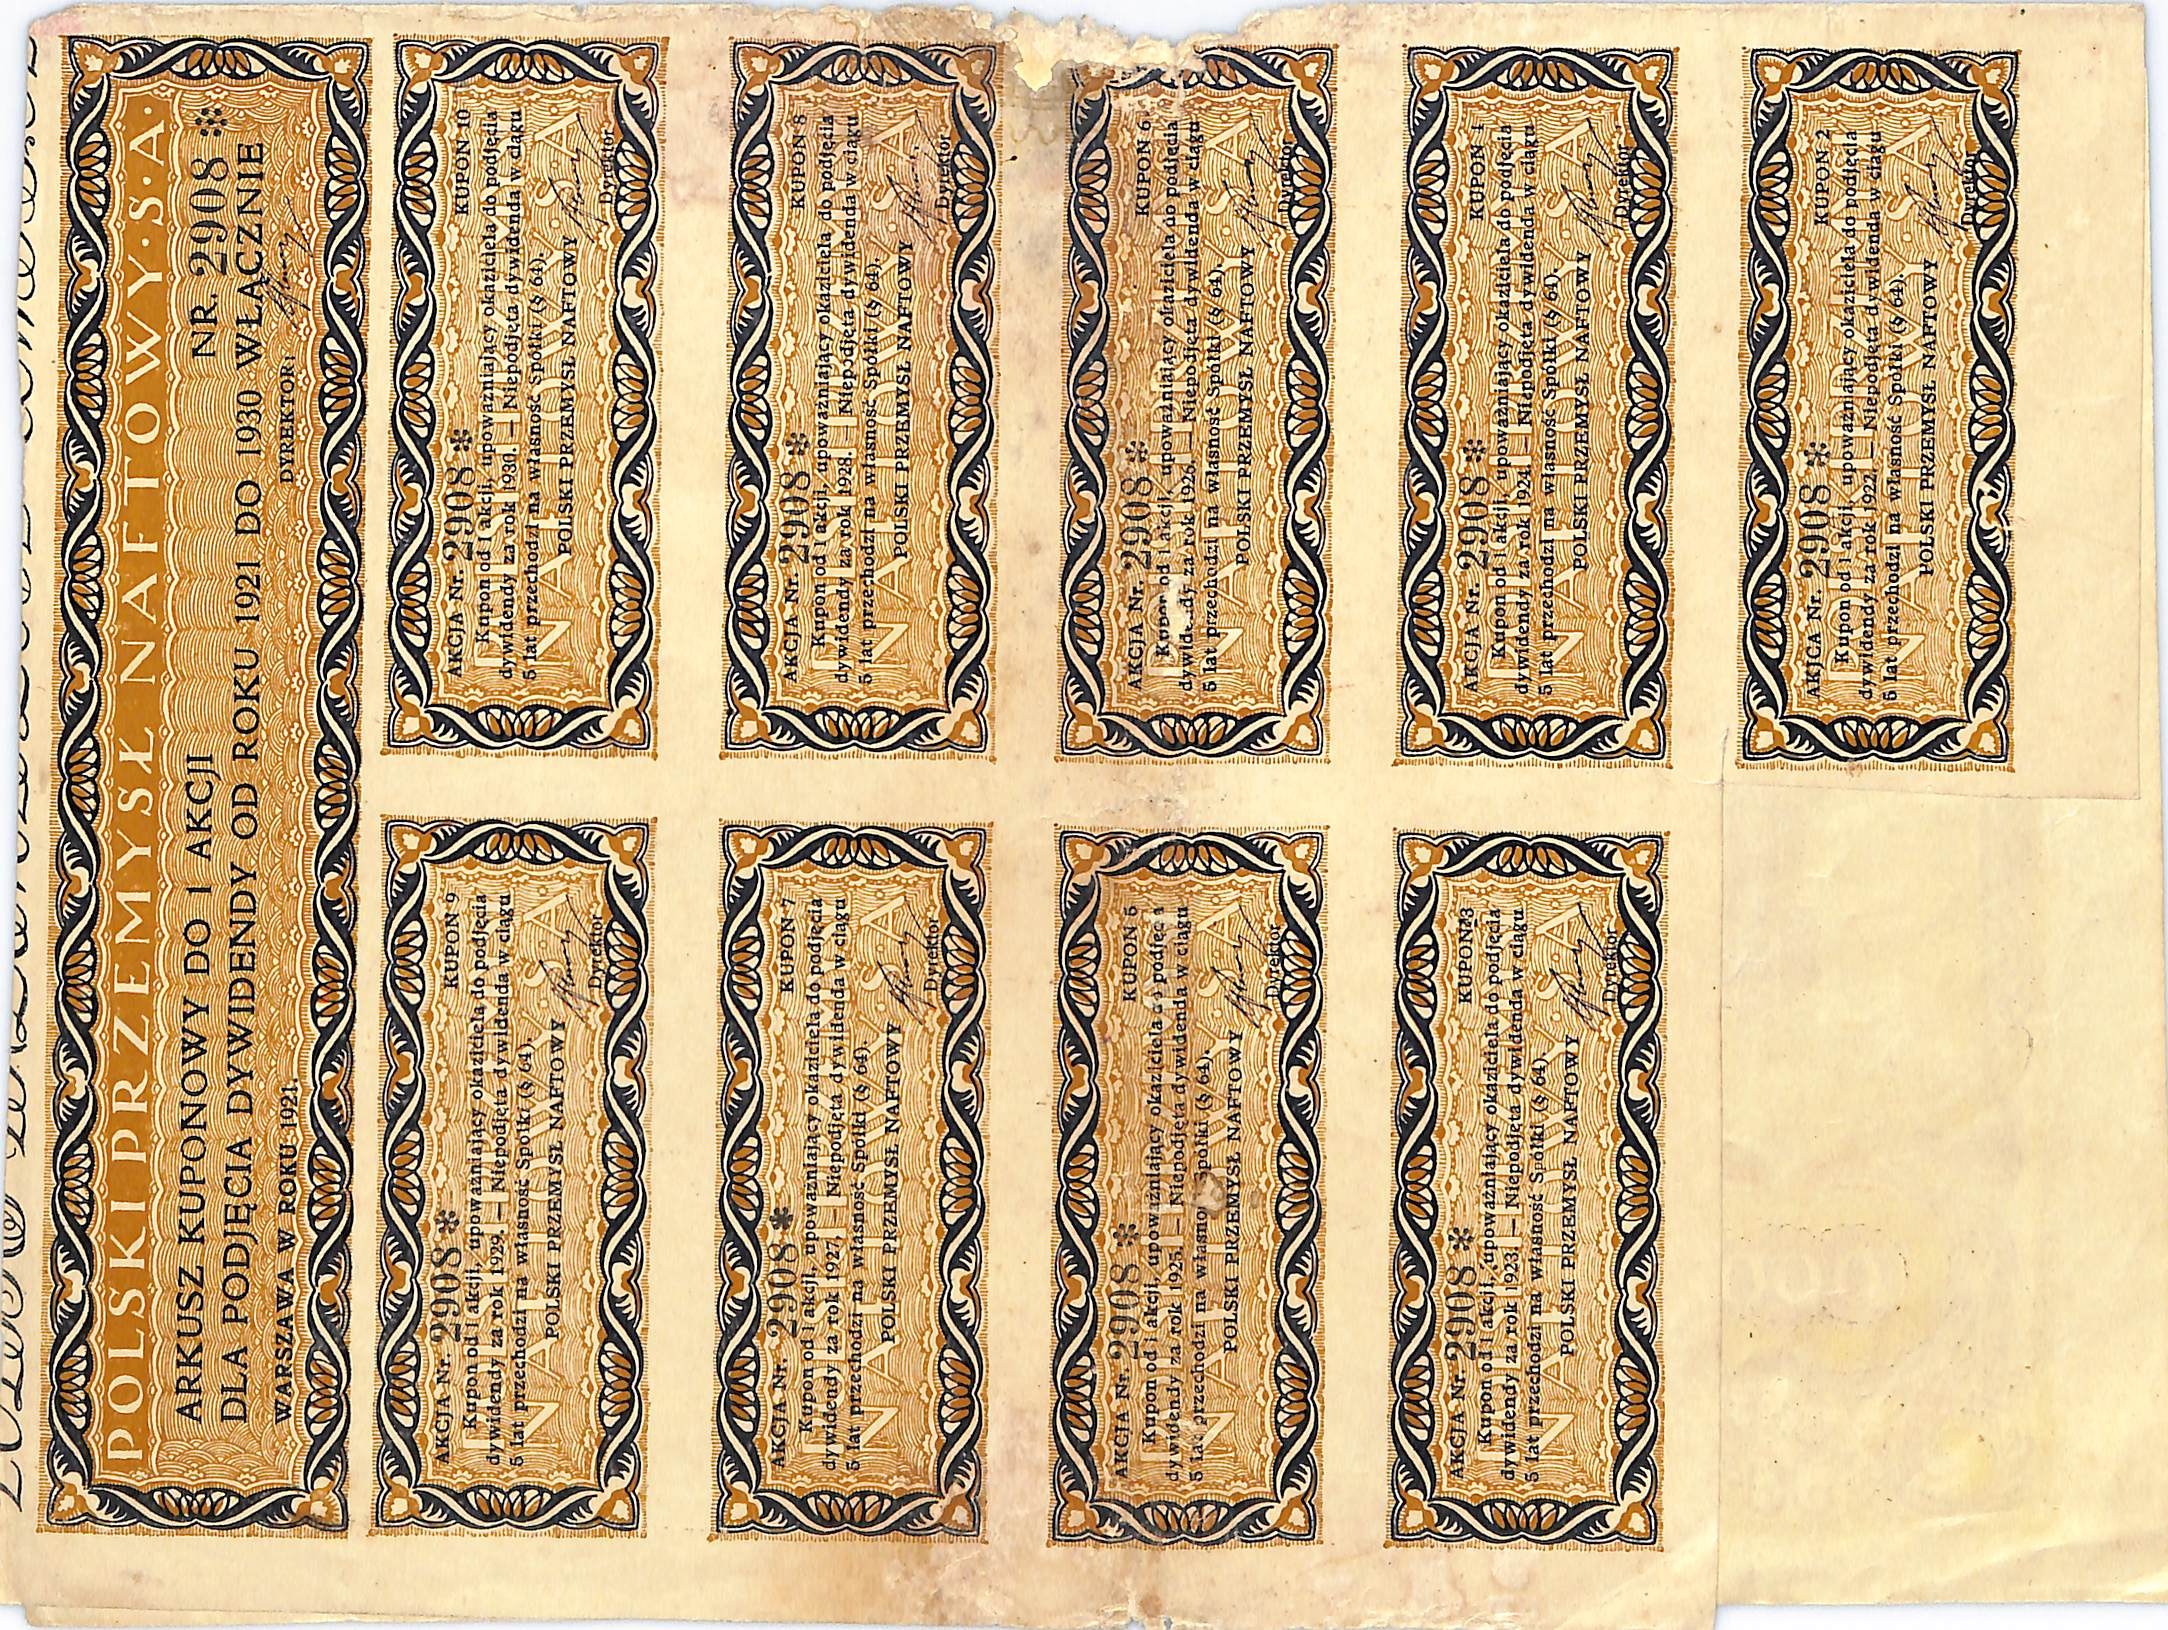 POLSKI PRZEMYSŁ NAFTOWY·S·A·
ARKUSZ KUPONOWY DO 1 AKCJI NR. 2908 *
DLA PODJĘCIA DYWIDENDY OD ROKU 1921 DO 1930 WŁĄCZNIE
WARSZAWA W ROKU 1921. DYREKTOR:
AKCJA Nr. 2908 * KUPON 9
Kupon od 1 akcji, upoważniający okaziciela do podjęcia
dywidendy za rok 1929. — Niepodjęta dywidenda w ciągu
5 lat przechodzi na własność Spółki (§ 64).
POLSKI PRZEMYSŁ NAFTOWY
Dyrektor
AKCJA Nr. 2908 * KUPON 10
Kupon od 1 akcji, upoważniający okaziciela do podjęcia
dywidendy za rok 1930. — Niepodjęta dywidenda w ciągu
5 lat przechodzi na własność Spółki (§ 64).
POLSKI PRZEMYSŁ NAFTOWY
Dyrektor
AKCJA Nr. 2908 * KUPON 7
Kupon od 1 akcji, upoważniający okaziciela do podjęcia
dywidendy za rok 1927. — Niepodjęta dywidenda w ciągu
5 lat przechodzi na własność Spółki (§ 64).
POLSKI PRZEMYSŁ NAFTOWY
Dyrektor
AKCJA Nr. 2908 * KUPON 8
Kupon od 1 akcji, upoważniający okaziciela do podjęcia
dywidendy za rok 1928. — Niepodjęta dywidenda w ciągu
5 lat przechodzi na własność Spółki (§ 64).
POLSKI PRZEMYSŁ NAFTOWY
Dyrektor
AKCJA Nr. 2908 * KUPON 5
Kupon od 1 akcji, upoważniający okaziciela do podjęcia
dywidendy za rok 1925. — Niepodjęta dywidenda w ciągu
5 lat przechodzi na własność Spółki (§ 64).
POLSKI PRZEMYSŁ NAFTOWY
Dyrektor
AKCJA Nr. 2908 * KUPON 6
Kupon od 1 akcji, upoważniający okaziciela do podjęcia
dywidendy za rok 1926. — Niepodjęta dywidenda w ciągu
5 lat przechodzi na własność Spółki (§ 64).
POLSKI PRZEMYSŁ NAFTOWY
Dyrektor
AKCJA Nr. 2908 * KUPON 3
Kupon od 1 akcji, upoważniający okaziciela do podjęcia
dywidendy za rok 1923. — Niepodjęta dywidenda w ciągu
5 lat przechodzi na własność Spółki (§ 64).
POLSKI PRZEMYSŁ NAFTOWY
Dyrektor
AKCJA Nr. 2908 * KUPON
Kupon od 1 akcji, upoważniający okaziciela do podjęcia
dywidendy za rok 1924. — Niepodjęta dywidenda w ciągu
5 lat przechodzi na własność Spółki (§ 64).
POLSKI PRZEMYSŁ NAFTOWY
Dyrektor
AKJCA Nr. 2908 * KUPON 2
Kupon od 1 akcji, upoważniający okaziciela do podjęcia
dywidendy za rok 1922. — Niepodjęta dywidenda w ciągu
5 lat przechodzi na własność Spółki (§ 64).
POLSKI PRZEMYSŁ NAFTOWY
Dyrektor